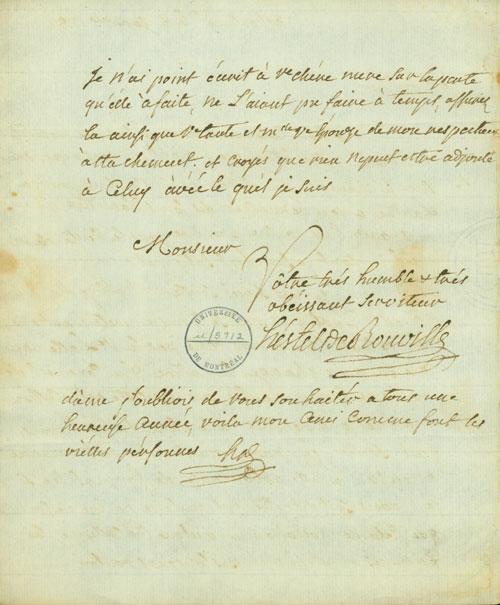 je n'ai point écrit à vre chére mere sur la perte
qu'éle à faite, ne L'aiant pu faire à temps, assurez
la ainsi que vre tante et mde vre épouse de mon respectueux
attachement, et croyés que rien ne peut estre adjouté
à Celuy avéc le quél je suis
Monsieur
Vôtre trés humble & trés
obéissant serviteur
hértel de Rouville
UNIVERSITÉ
DE MONTRÉAL
j'oubliois de vous souhaiter a tous une
heureuse année, voila mon ami comme font les
viélles pérsonnes